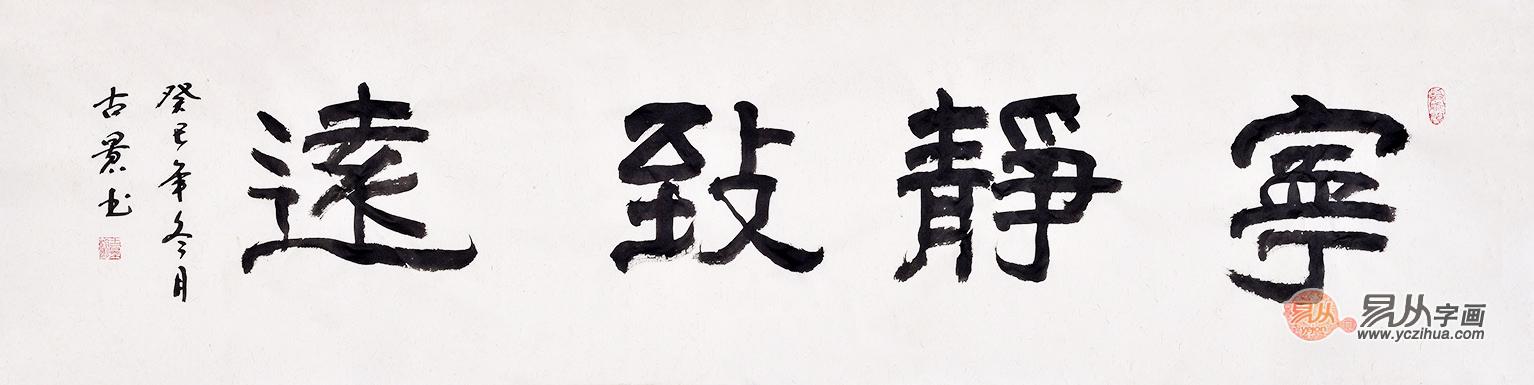 寧靜致遠
癸巳年冬月
古景书
易从字画
www.yczihua.com
yepion